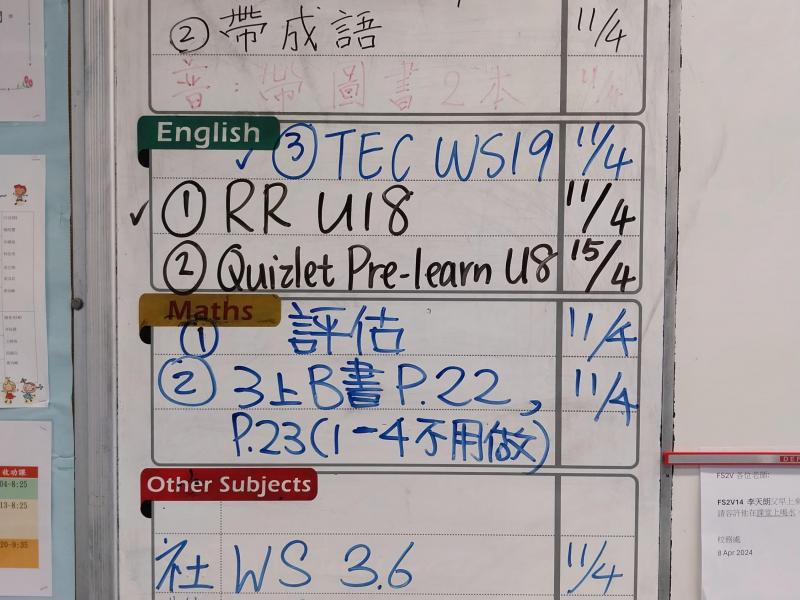 ② 帶成語 11/4
音：帶圖書2本 11/4
English
③ TEC WS19 11/4
✓ ① RR U18 11/4
② Quizlet Pre-learn U8 15/4
Maths
① 評估 11/4
② 3上B書 P.22, 11/4
P.23(1-4不用做)
Other Subjects
社 WS 3.6 11/4
收功課
04-8:25
13-8:25
20-9:35
FS2V 各位老師:
FS2V14 李天朗
請容許他在課堂上喝水
校務處
8 Apr 2024